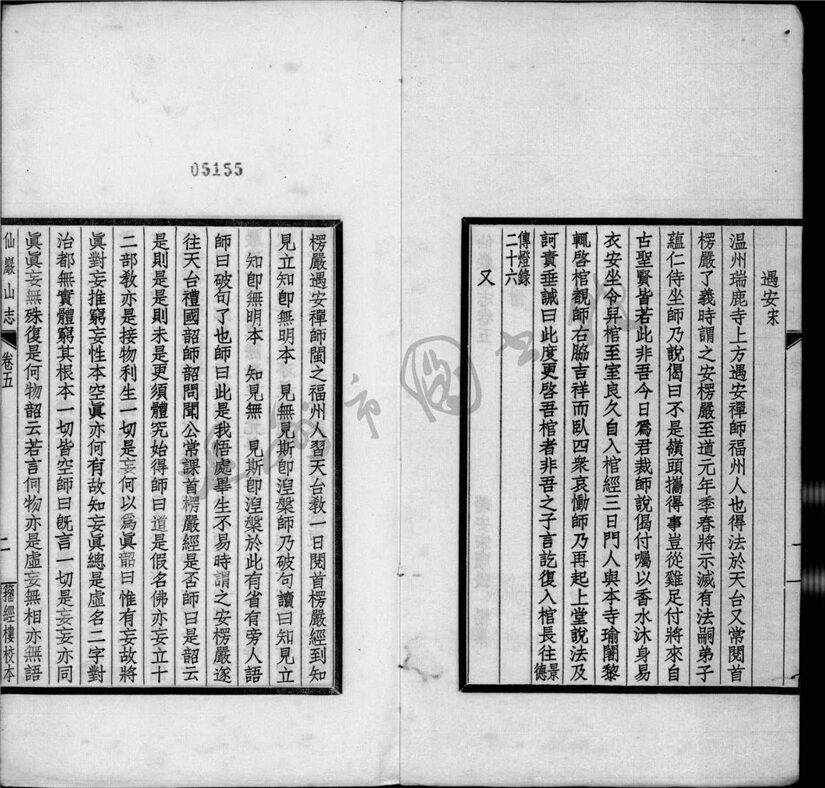 遇安宋
温州瑞鹿寺上方遇安禪師福州人也得法於天台又常閱首
楞嚴了義時謂之安楞嚴至道元年季春將示滅有法嗣弟子
蘊仁侍坐師乃說偈曰不是嶺頭攜得事豈從雞足付將來自
古聖賢皆若此非吾今日爲君裁師說偈付囑以香水沐身易
衣安坐令舁棺至室良久自入棺經三日門人與本寺瑜闍黎
輒啓棺覩師右脇吉祥而臥四衆哀慟師乃再起上堂說法及
訶責垂誡曰此度更啓吾棺者非吾之子言訖復入棺長往景德
傳燈錄
二十六
又
楞嚴遇安禪師閩之福州人習天台敎一日閱首楞嚴經到知
見立知卽無明本 知見無見斯卽湼槃師乃破句讀曰知見立
知卽無明本 知見無 見斯卽湼槃於此有省有旁人語
師曰破句了也師曰此是我悟處畢生不易時謂之安楞嚴遂
往天台禮國韶師韶問聞公常課首楞嚴經是否師曰是韶云
是則是是則未是更須體究始得師曰道是假名佛亦妄立十
二部敎亦是接物利生一切是妄何以爲眞韶曰惟有妄故將
眞對妄推窮妄性本空眞亦何有故知妄眞總是虛名二字對
治都無實體窮其根本一切皆空師曰旣言一切是妄妄亦同
眞眞妄無殊復是何物韶云若言何物亦是虛妄無相亦無語
仙巖山志 卷五 二 籀經樓校本
05155